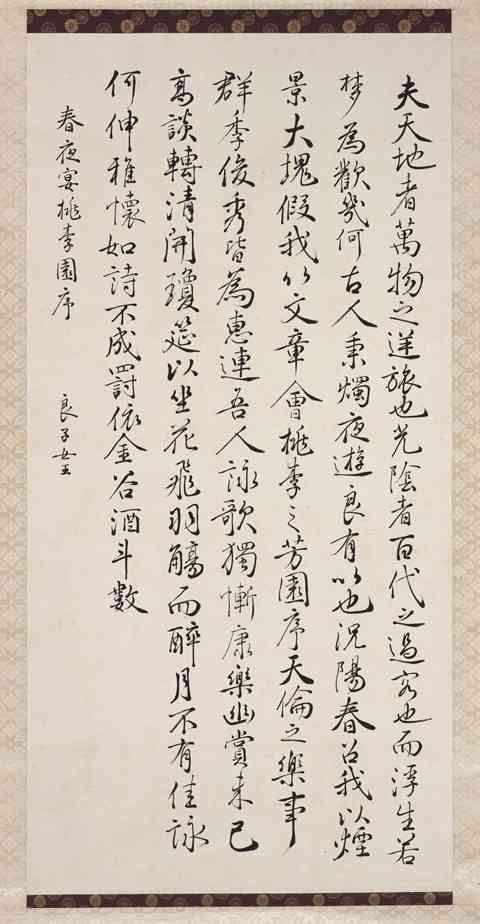 夫天地者萬物之逆旅也光陰者百代之過客也而浮生若
夢為歡幾何古人秉燭夜遊良有以也況陽春召我以煙
景大塊假我以文章會桃李之芳園序天倫之樂事
群季俊秀皆為惠連吾人詠歌獨慚康樂幽賞未已
高談轉清開瓊筵以坐花飛羽觴而醉月不有佳詠
何伸雅懷如詩不成罰依金谷酒斗數
春夜宴桃李園序
良子女王